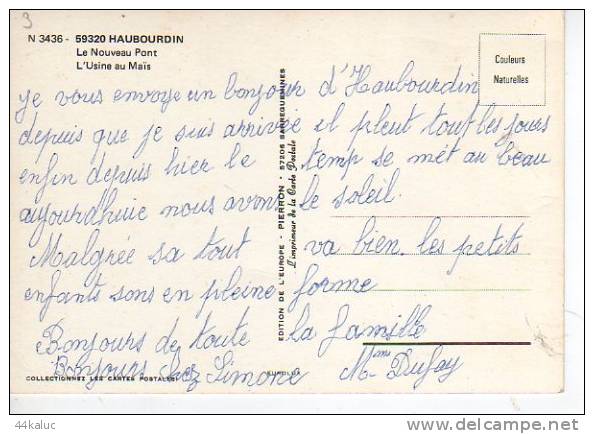 3
N 3436 - 59320 HAUBOURDIN
Le Nouveau Pont
L'Usine au Maïs
Couleurs
Naturelles
je vous envoye un bonjour d'Haubourdin
depuis que je suis arrivée il pleut tout les jours
enfin depuis hier le temp se mét au beau
aujourdhuie nous avons le soleil.
Malgrée sa tout va bien. les petits
enfants sons en pleine forme
Bonjours de toute la famille
Bonjours chez Simone Mme Dufay
EDITION DE L'EUROPE - PIERRON - 57206 SARREGUEMINES
L'imprimeur de la Carte Postale
COLLECTIONNEZ LES CARTES POSTALES
EUROLUX
44kaluc
delcampe.net